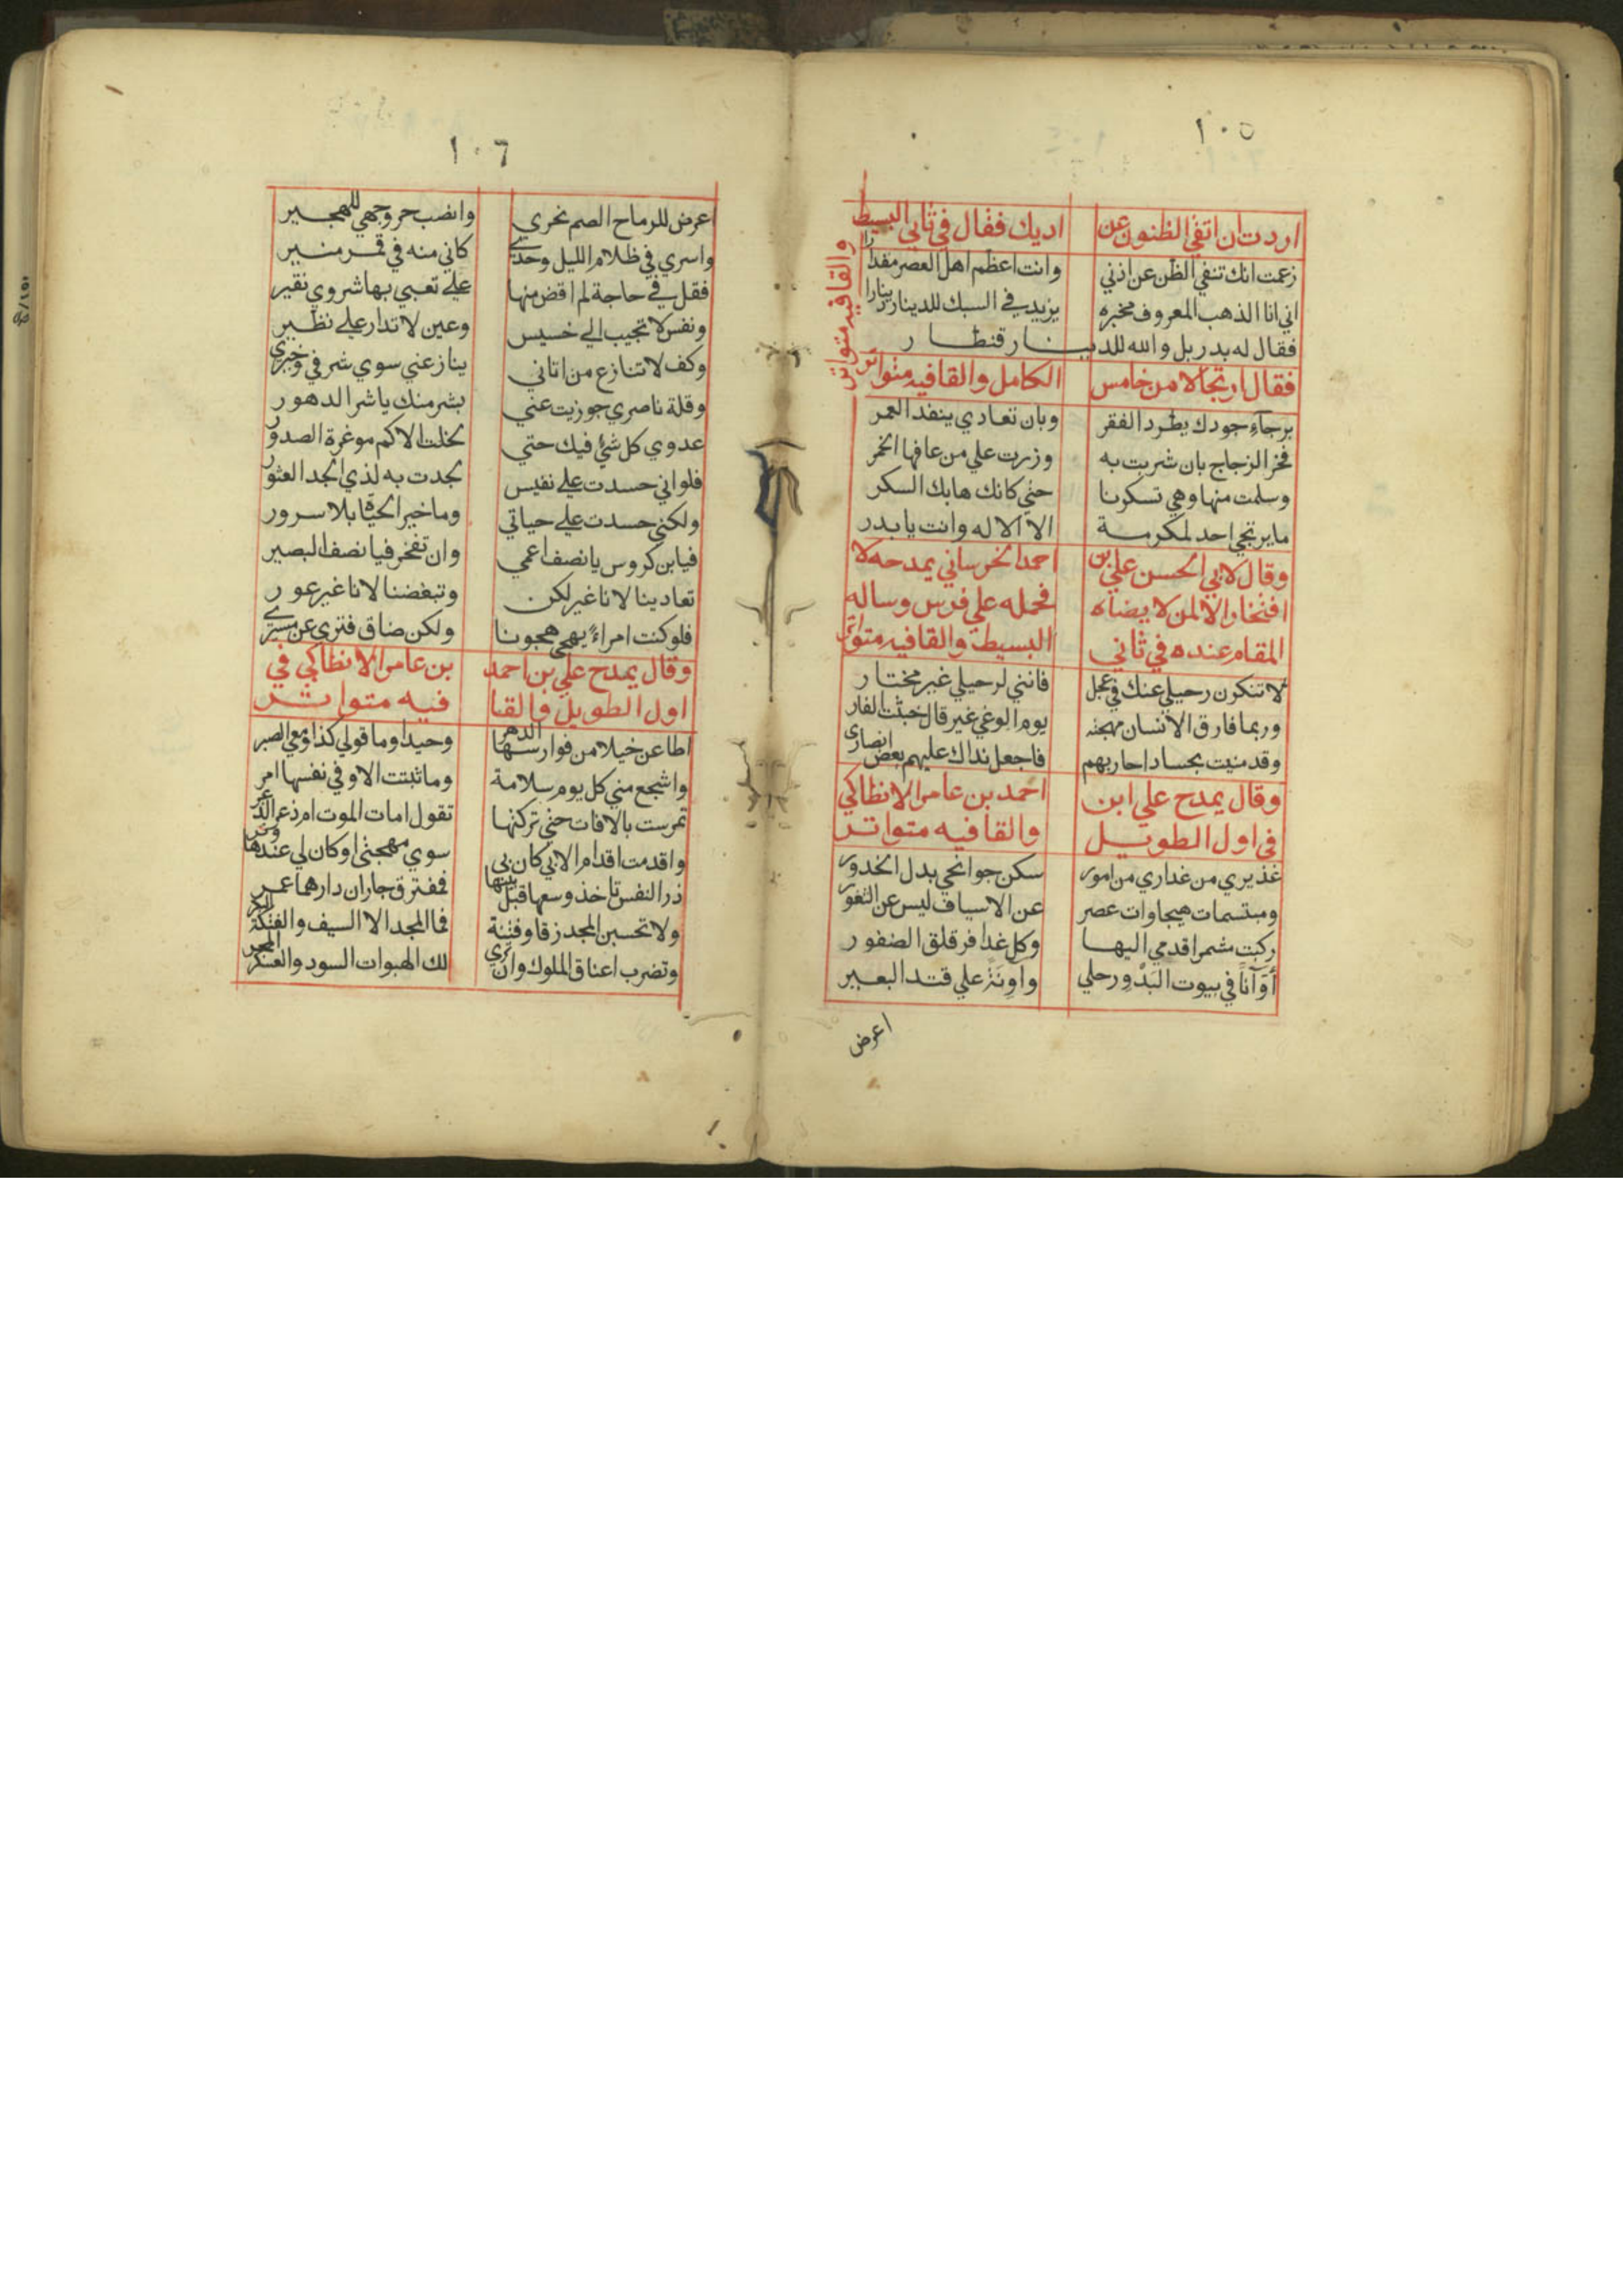 ١٠٥
اردت ان اتفي الظنون عن اديك فقال في ثاني البسيط
والقافيه متواتر
زعمت انك تنفي الظن عن ادني وانت اعظم اهل العصر مقدارا
اني انا الذهب المعروف مخبره يزيد في السبك للدينار دينارا
فقال له بدر بل والله للدينار قنطار
فقال ارتجالا من خامس الكامل والقافيه متواتر
برجآء جودك يطرد الفقر وبان تعادي ينفد العمر
فخر الزجاج بان شربت به وزرت علي من عافها الخمر
وسلمت منها وهي تسكرنا حتي كانك هابك السكر
ما يرتجي احد لمكرمة الا الاله وانت يا بدر
وقال لابي الحسن علي بن احمد الخرساني يمدحه لا
افتخار الا لمن لا يضاه فحمله علي فرس وساله
المقام عنده في ثاني البسيط والقافيه متواتر
لا تنكرن رحيلي عنك في عجل فانني لرحيلي غير مختار
وربما فارق الانسان مهجته يوم الوغي غير قال خيثت الفار
وقد منيت بحساد احاربهم فاجعل نداك عليهم بعض انصاري
وقال يمدح علي ابن احمد بن عامر الانطاكي
في اول الطويل والقافيه متواتر
غذيري من غداري من امور سكن جوانحي بدل الخدور
ومبتسمات هيجاوات عصر عن الاسياف ليس عن الثغور
ركبت مشمرا قدمي اليها وكل غدافر قلق الضفور
أوآناً في بيوت البدو رحلي واونة علي قتد البعير
اعرض
١٠٦
اعرض للرماح الصم نحري وانصب حر وجهي للهجير
واسري في ظلام الليل وحدي كاني منه في قمر منير
فقل في حاجة لم اقض منها علي تعبي بها شروي نقير
ونفس لا تجيب الي خسيس وعين لا تدار علي نظير
وكف لا تنازع من اتاني ينازعني سوي شرفي وخيري
وقلة ناصري جوزيت عني بشر منك يا شر الدهور
عدوي كل شئ فيك حتي لخلت الاكم موغرة الصدور
فلو اني حسدت علي نفيس لجدت به لذي الجد العثور
ولكني حسدت علي حياتي وما خير الحياة بلا سرور
فيا بن كروس يا نصف اعمي وان تفخر فيا نصف البصير
تعادينا لانا غير لكن وتبغضنا لانا غير عور
فلو كنت امراءً يهجي هجونا ولكن ضاق فتري عن مسيري
وقال يمدح علي بن احمد بن عامر الانطاكي في
اول الطويل والقا فيه متواتر
اطاعن خيلا من فوارسها الدهر وحيدا وما قولي كذا ومعي الصبر
واشجع مني كل يوم سلامة وما ثبتت الا وفي نفسها امر
تمرست بالافات حتي تركتها تقول امات الموت ام ذعر الذعر
واقدمت اقدام الابي كان بي سوي مهجتي او كان لي عندها وتر
ذر النفس تاخذ وسعها قبل بينها ففترق جاران دارهما عمر
ولا تحسبن المجد زقا وقينة فما المجد الا السيف والفتكة البكر
وتضرب اعناق الملوك وان تري لك الهبوات السود والعسكر المجر